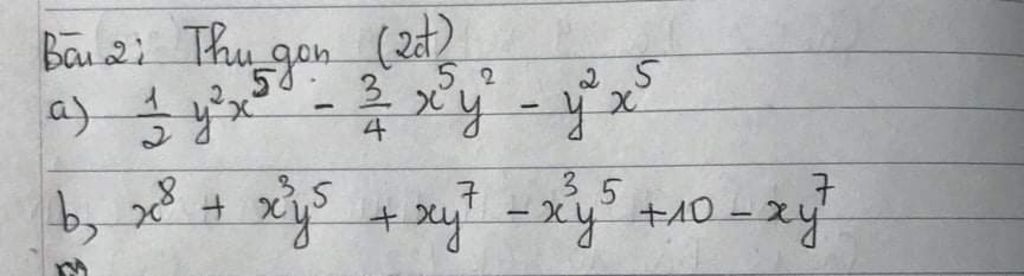 Bài 2: Thu gọn (2đ)
a) 1/2 y²x⁵ - 3/4 x⁵y² - y²x⁵
b, x⁸ + x³y⁵ + xy⁷ - x³y⁵ + 10 - xy⁷